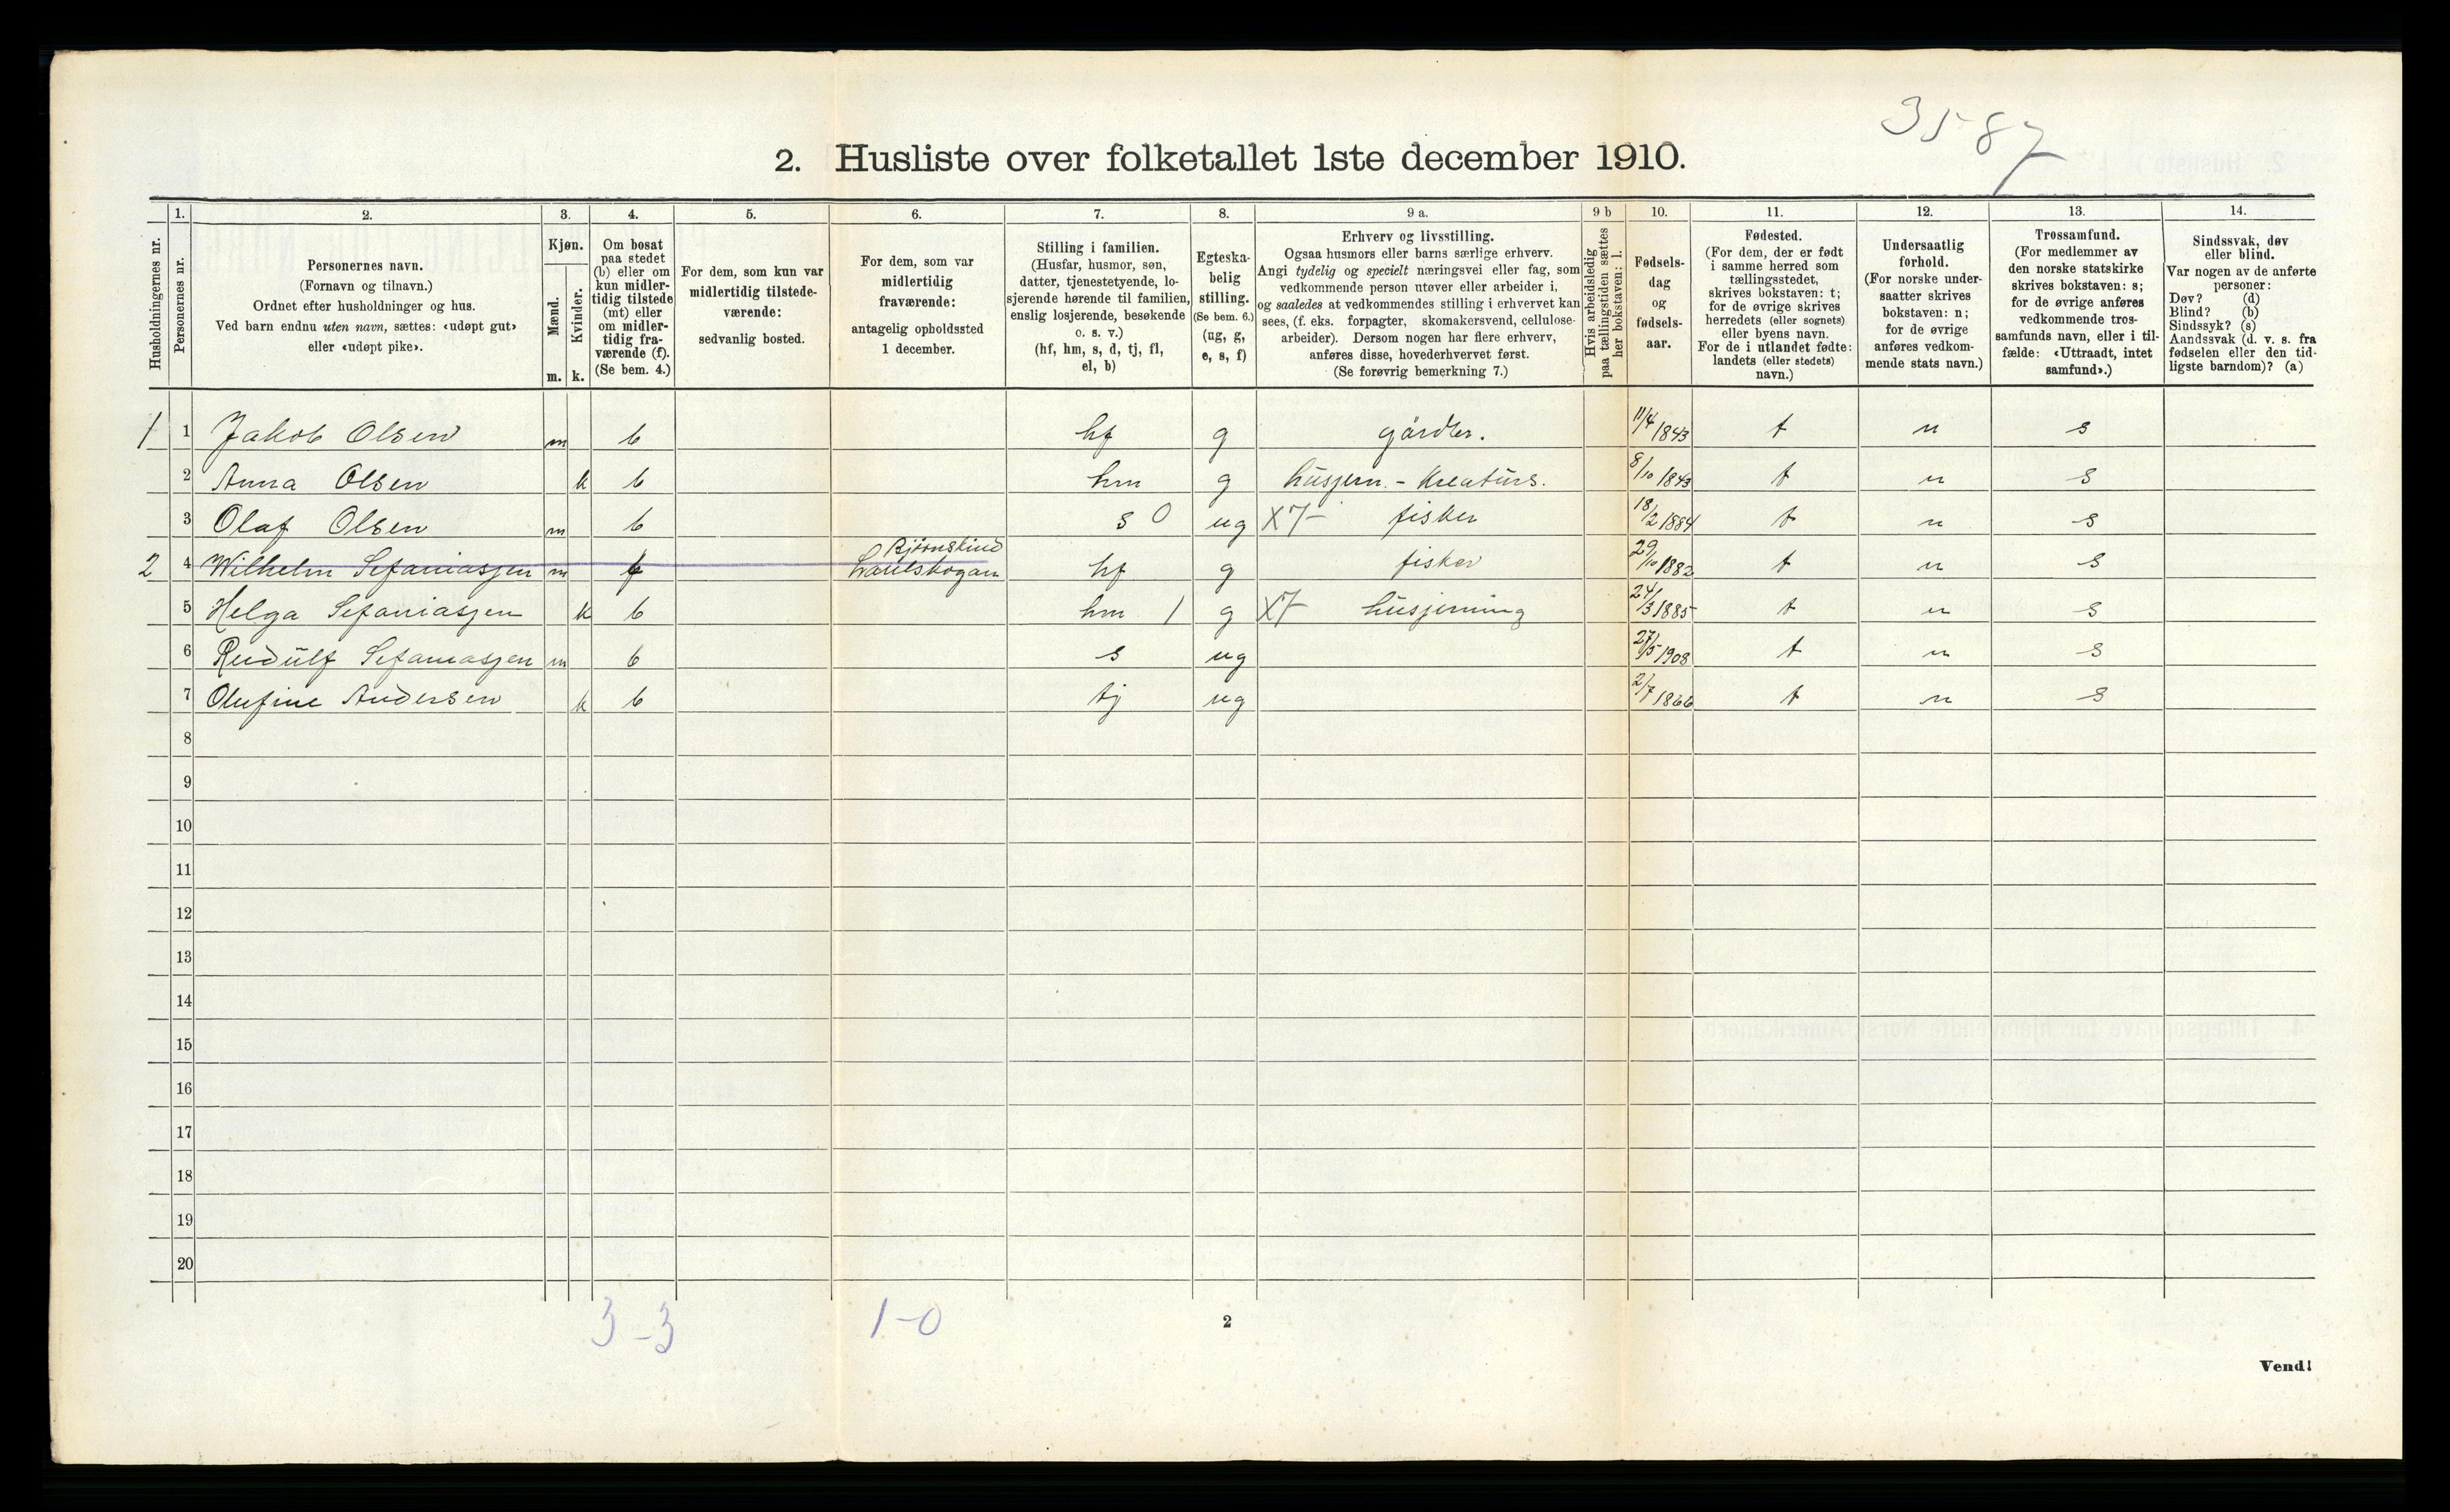 3587
2. Husliste over folketallet 1ste december 1910.
1. 2. 3. 4. 5. 6. 7. 8. 9 a. 9 b 10. 11. 12. 13. 14.
Husholdningernes nr.
Personernes nr.
Personernes navn.
(Fornavn og tilnavn.)
Ordnet efter husholdninger og hus.
Ved barn endnu uten navn, sættes: «udøpt gut»
eller «udøpt pike».
Kjøn.
Mænd.
Kvinder.
m. k.
Om bosat
paa stedet
(b) eller om
kun midler-
tidig tilstede
(mt) eller
om midler-
tidig fra-
værende (f).
(Se bem. 4.)
For dem, som kun var
midlertidig tilstede-
værende:
sedvanlig bosted.
For dem, som var
midlertidig
fraværende:
antagelig opholdssted
1 december.
Stilling i familien.
(Husfar, husmor, søn,
datter, tjenestetyende, lo-
sjerende hørende til familien,
enslig losjerende, besøkende
o. s. v.)
(hf, hm, s, d, tj, fl,
el, b)
Egteska-
belig
stilling.
(Se bem. 6.)
(ug, g,
e, s, f)
Erhverv og livsstilling.
Ogsaa husmors eller barns særlige erhverv.
Angi tydelig og specielt næringsvei eller fag, som
vedkommende person utøver eller arbeider i,
og saaledes at vedkommendes stilling i erhvervet kan
sees, (f. eks. forpagter, skomakersvend, cellulose-
arbeider). Dersom nogen har flere erhverv,
anføres disse, hovederhvervet først.
(Se forøvrig bemerkning 7.)
Hvis arbeidsledig
paa tællingstiden sættes
her bokstaven: l.
Fødsels-
dag
og
fødsels-
aar.
Fødested.
(For dem, der er født
i samme herred som
tællingsstedet,
skrives bokstaven: t;
for de øvrige skrives
herredets (eller sognets)
eller byens navn.
For de i utlandet fødte:
landets (eller stedets)
navn.)
Undersaatlig
forhold.
(For norske under-
saatter skrives
bokstaven: n;
for de øvrige
anføres vedkom-
mende stats navn.)
Trossamfund.
(For medlemmer av
den norske statskirke
skrives bokstaven: s;
for de øvrige anføres
vedkommende tros-
samfunds navn, eller i til-
fælde: «Uttraadt, intet
samfund».)
Sindssvak, døv
eller blind.
Var nogen av de anførte
personer:
Døv? (d)
Blind? (b)
Sindssyk? (s)
Aandssvak (d. v. s. fra
fødselen eller den tid-
ligste barndom)? (a)
1 1 Jakob Olsen m b hf g gårdbr. 11/4 1843 t n s
2 Anna Olsen k b hm g husgjern. - Kreaturs. 8/10 1843 t n s
3 Olaf Olsen m b s 0 ug X7- fisker 18/2 1884 t n s
Björnskind
2 4 Wilhelm Sefaniasjen m f hf g fisker 29/10 1882 t n s
5 Helga Sefaniasjen k b hm 1 g X7- husjerning 24/3 1885 t n s
6 Rudulf Sefaniasjen m b s ug 27/5 1908 t n s
7 Olufine Andersen k b tj ug 2/7 1866 t n s
8
9
10
11
12
13
14
15
16
17
18
19
20
3-3 1-0
2
Vend!